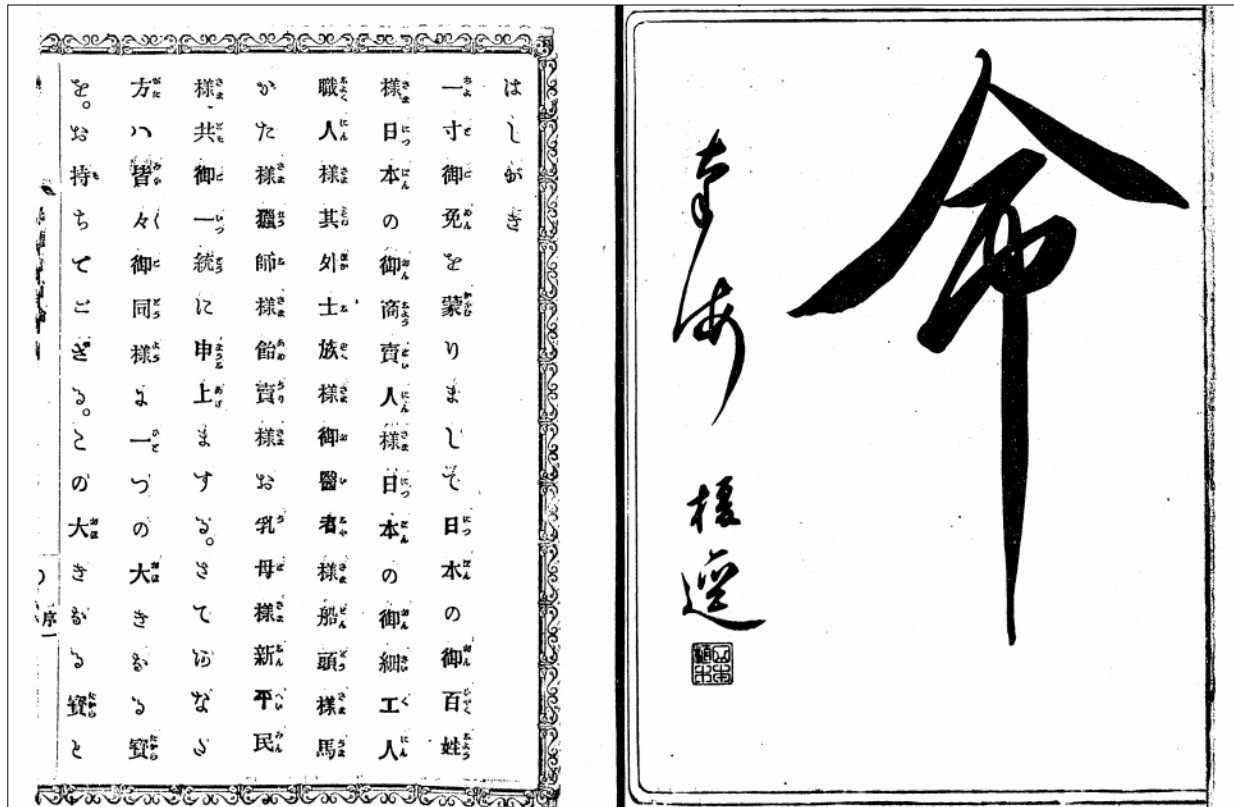 命
はしがき
一寸御免を蒙りまして日本の御百姓
様日本の御商賣人様日本の御細工人
職人様其外士族様御醫者様船頭様馬
かた様獵師様飴賣様お乳母様新平民
様共御一統に申上まする。さてあなた
方ハ皆々御同様に一つの大きなる寳
を。お持ちてござる。この大きなる寳と
序一